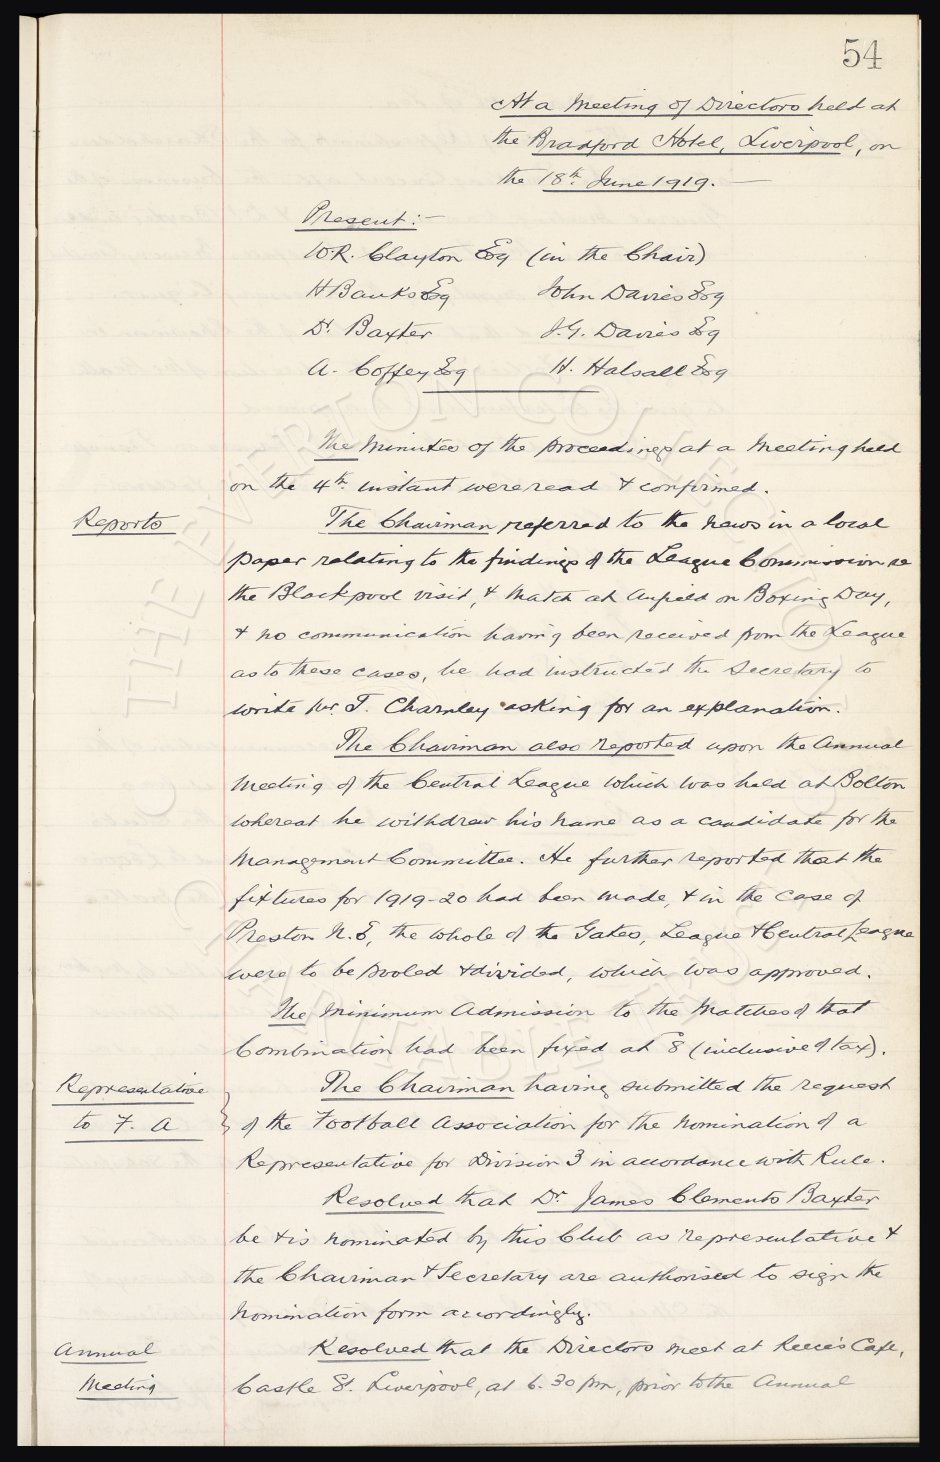 54
At a Meeting of Directors held at
the Bradford Hotel, Liverpool, on
the 18th June 1919.
Present:-
W.R. Clayton Esq (in the Chair)
H Banks Esq John Davies Esq
Dr. Baxter J.G. Davies Esq
A. Coffey Esq H. Halsall Esq
The Minutes of the proceedings at a Meeting held
on the 4th instant were read & confirmed.
Reports
The Chairman referred to the news in a local
paper relating to the findings of the League Commission re
the Blackpool visit, & Match at Anfield on Boxing Day,
& no communication having been received from the League
as to these cases, he had instructed the Secretary to
write Mr. T. Charnley asking for an explanation.
The Chairman also reported upon the Annual
Meeting of the Central League which was held at Bolton
whereat he withdrew his name as a candidate for the
Management Committee. He further reported that the
fixtures for 1919-20 had been made, & in the case of
Preston N.E, the whole of the Gates, League & Central League
were to be pooled & divided, which was approved.
The Minimum Admission to the Matches of that
Combination had been fixed at 8 (inclusive of tax).
Representative
to F. A
The Chairman having submitted the request
of the Football Association for the nomination of a
Representative for Division 3 in accordance with Rule.
Resolved that Dr. James Clements Baxter
be & is nominated by this Club as representative &
the Chairman & Secretary are authorised to sign the
Nomination form accordingly.
Annual
Meeting
Resolved that the Directors meet at Reece's Cafe,
Castle St. Liverpool, at 6.30 pm, prior to the Annual